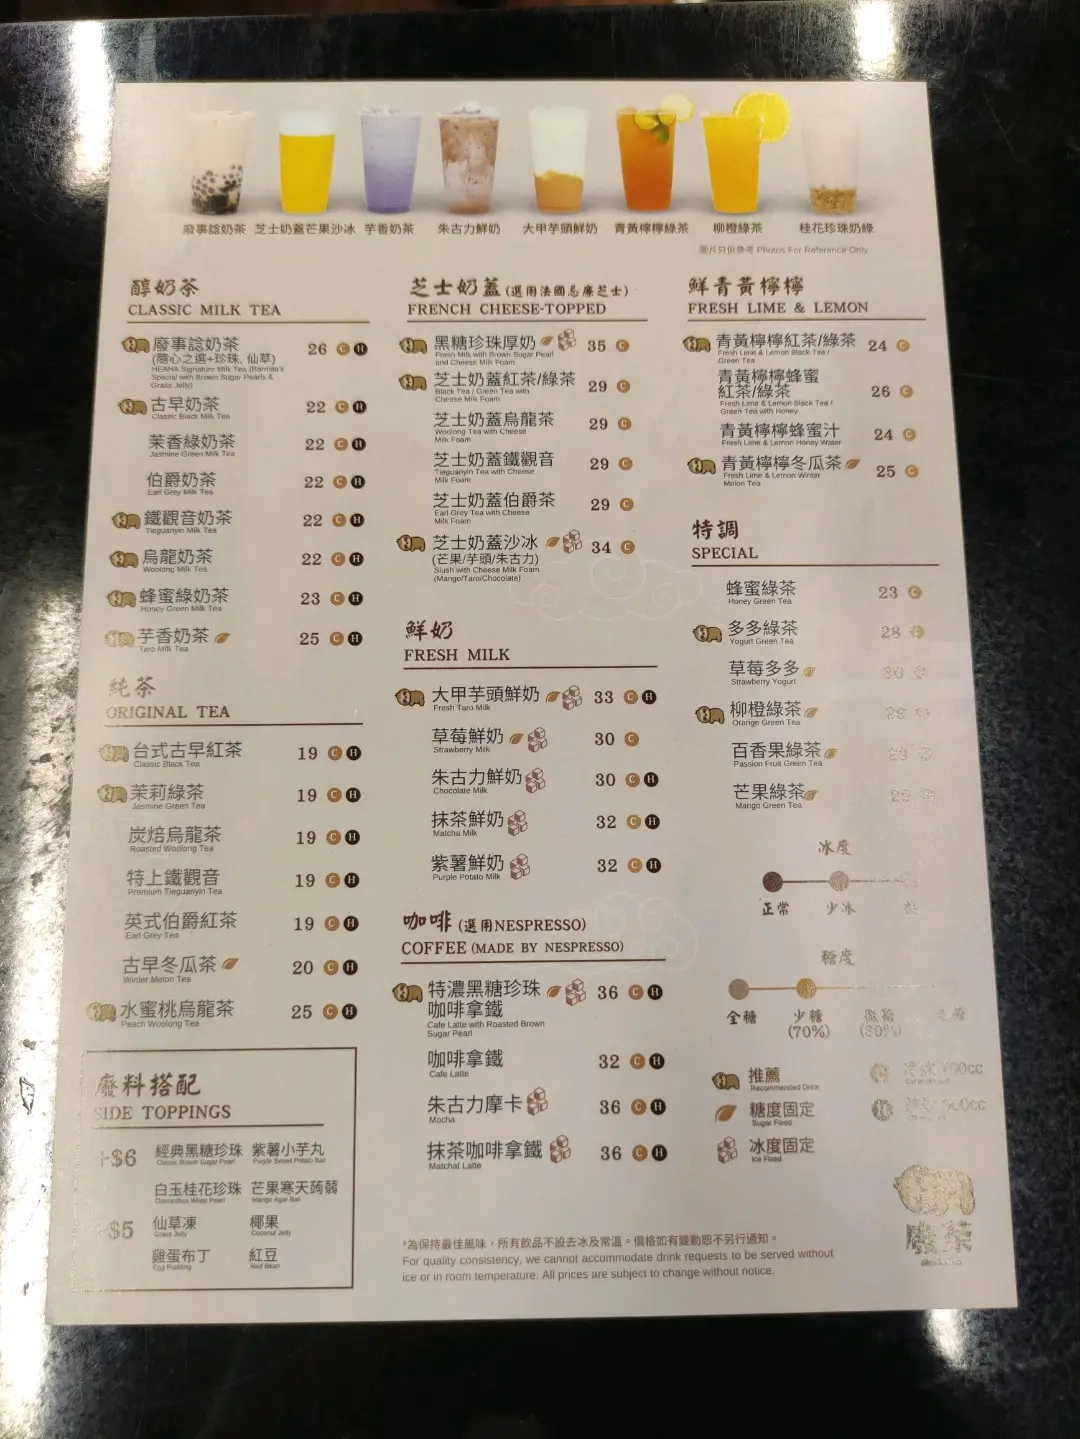 廢事諗奶茶 芝士奶蓋芒果沙冰 芋香奶茶 朱古力鮮奶 大甲芋頭鮮奶 青黃檸檸綠茶 柳橙綠茶 桂花珍珠奶綠
圖片只供參考 Photos For Reference Only
醇奶茶
CLASSIC MILK TEA
廢事諗奶茶 26 C H
(隨心之選+珍珠, 仙草)
HEAHA Signature Milk Tea (Barrista's
Special with Brown Sugar Pearls &
Grass Jelly)
古早奶茶 22 C H
Classic Black Milk Tea
茉香綠奶茶 22 C H
Jasmine Green Milk Tea
伯爵奶茶 22 C H
Earl Grey Milk Tea
鐵觀音奶茶 22 C H
Tieguanyin Milk Tea
烏龍奶茶 22 C H
Woolong Milk Tea
蜂蜜綠奶茶 23 C H
Honey Green Milk Tea
芋香奶茶 25 C H
Taro Milk Tea
純茶
ORIGINAL TEA
台式古早紅茶 19 C H
Classic Black Tea
茉莉綠茶 19 C H
Jasmine Green Tea
炭焙烏龍茶 19 C H
Roasted Woolong Tea
特上鐵觀音 19 C H
Premium Tieguanyin Tea
英式伯爵紅茶 19 C H
Earl Grey Tea
古早冬瓜茶 20 C H
Winter Melon Tea
水蜜桃烏龍茶 25 C H
Peach Woolong Tea
廢料搭配
SIDE TOPPINGS
+$6 經典黑糖珍珠 紫薯小芋丸
Classic Brown Sugar Pearl Purple Sweet Potato Ball
白玉桂花珍珠 芒果寒天蒟蒻
Osmanthus White Pearl Mango Agar Ball
+$5 仙草凍 椰果
Grass Jelly Coconut Jelly
雞蛋布丁 紅豆
Egg Pudding Red Bean
芝士奶蓋 (選用法國忌廉芝士)
FRENCH CHEESE-TOPPED
黑糖珍珠厚奶 35 C
Fresh Milk with Brown Sugar Pearl
and Cheese Milk Foam
芝士奶蓋紅茶/綠茶 29 C
Black Tea / Green Tea with
Cheese Milk Foam
芝士奶蓋烏龍茶 29 C
Woolong Tea with Cheese
Milk Foam
芝士奶蓋鐵觀音 29 C
Tieguanyin Tea with Cheese
Milk Foam
芝士奶蓋伯爵茶 29 C
Earl Grey Tea with Cheese
Milk Foam
芝士奶蓋沙冰 34 C
(芒果/芋頭/朱古力)
Slush with Cheese Milk Foam
(Mango/Taro/Chocolate)
鮮奶
FRESH MILK
大甲芋頭鮮奶 33 C H
Fresh Taro Milk
草莓鮮奶 30 C
Strawberry Milk
朱古力鮮奶 30 C H
Chocolate Milk
抹茶鮮奶 32 C H
Matcha Milk
紫薯鮮奶 32 C H
Purple Potato Milk
咖啡 (選用NESPRESSO)
COFFEE (MADE BY NESPRESSO)
特濃黑糖珍珠 36 C H
咖啡拿鐵
Cafe Latte with Roasted Brown
Sugar Pearl
咖啡拿鐵 32 C H
Cafe Latte
朱古力摩卡 36 C H
Mocha
抹茶咖啡拿鐵 36 C H
Matchat Latte
鮮青黃檸檸
FRESH LIME & LEMON
青黃檸檸紅茶/綠茶 24 C
Fresh Lime & Lemon Black Tea /
Green Tea
青黃檸檸蜂蜜
紅茶/綠茶 26 C
Fresh Lime & Lemon Black Tea /
Green Tea with Honey
青黃檸檸蜂蜜汁 24 C
Fresh Lime & Lemon Honey Water
青黃檸檸冬瓜茶 25 C
Fresh Lime & Lemon Winter
Melon Tea
特調
SPECIAL
蜂蜜綠茶 23 C
Honey Green Tea
多多綠茶 28
Yogurt Green Tea
草莓多多
Strawberry Yogurt
柳橙綠茶
Orange Green Tea
百香果綠茶
Passion Fruit Green Tea
芒果綠茶
Mango Green Tea
冰度
正常 少冰
糖度
全糖 少糖
(70%) (30%)
推薦
Recommended Drink
糖度固定
Sugar Fixed
冰度固定
Ice Fixed
廢茶
*為保持最佳風味，所有飲品不設去冰及常溫。價格如有變動恕不另行通知。
For quality consistency, we cannot accommodate drink requests to be served without
ice or in room temperature. All prices are subject to change without notice.